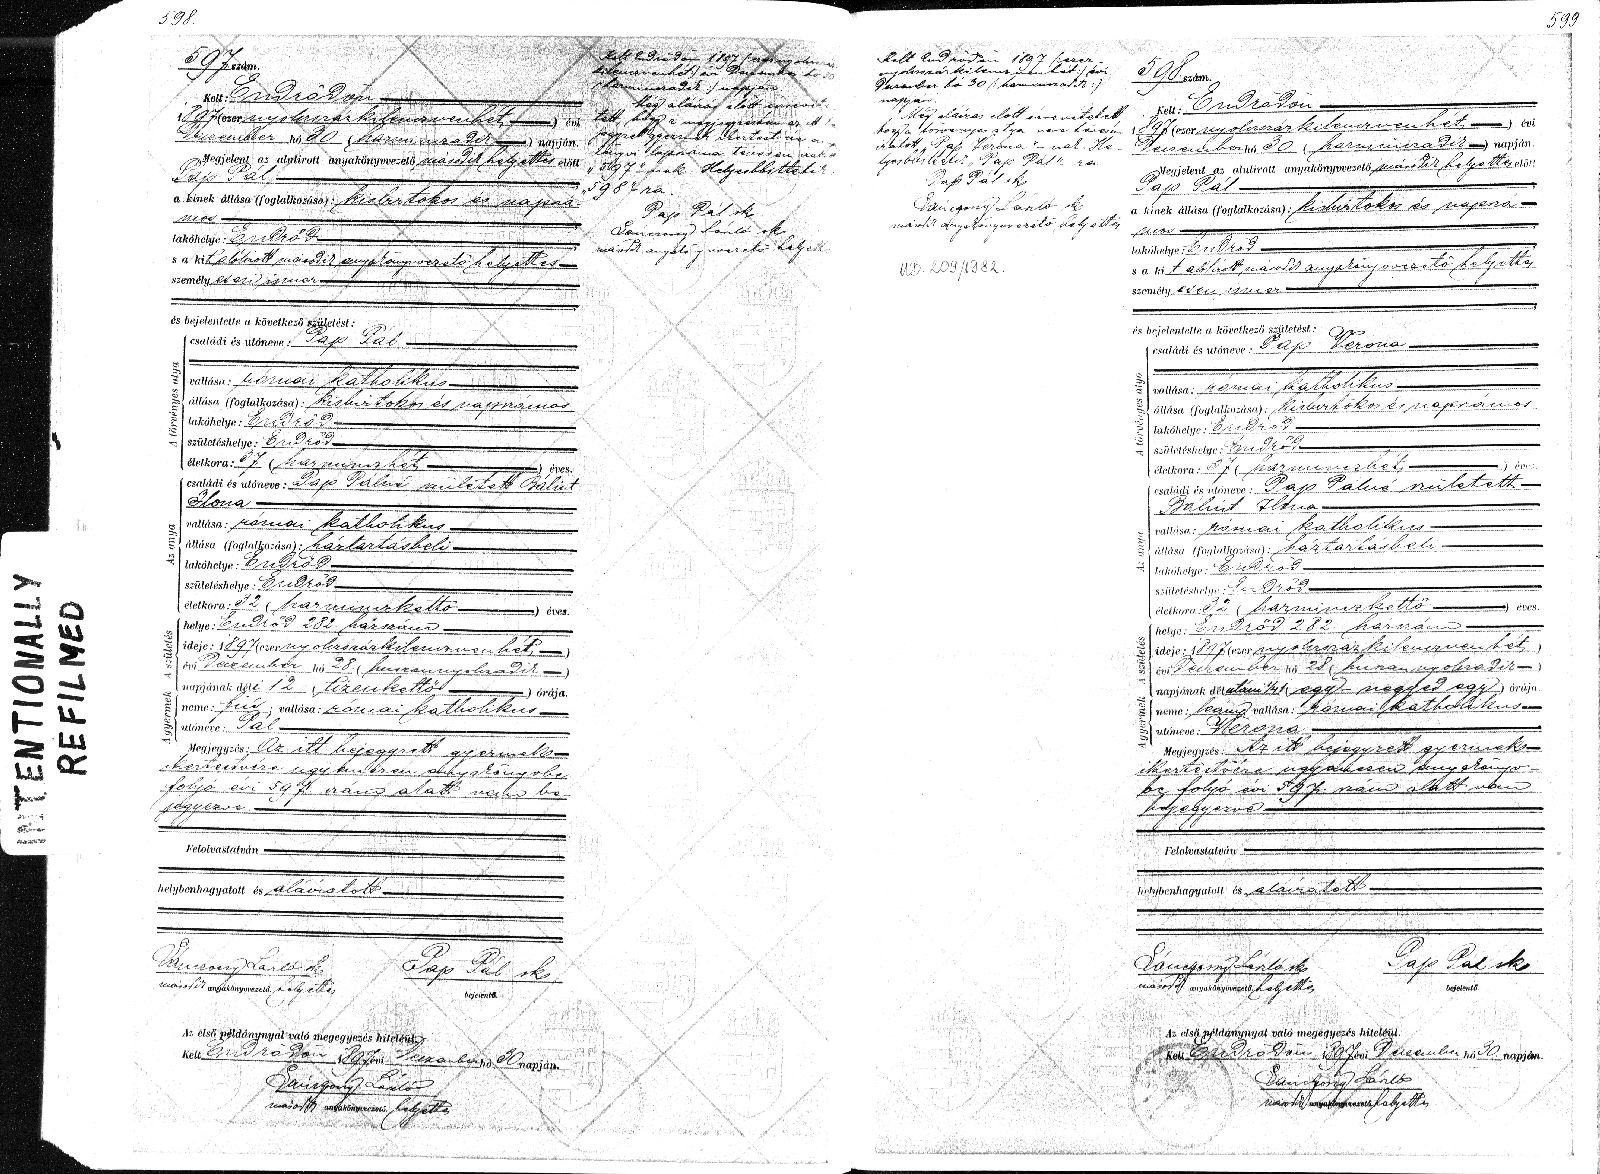 598.
INTENTIONALLY
REFILMED
597 szám.
Kelt: Endrődön
1897 (ezer nyolcszázkilencvenhét) évi
December hó 30 (harmincadik) napján.
Megjelent az alulirott anyakönyvvezető, második helyettes előtt
Pap Pál
a kinek állása (foglalkozása): kisbirtokos és napszá-
mos
lakóhelye: Endrőd
s a kit alulirott második anyakönyvvezető helyettes
személyesen ismer
és bejelentette a következő születést:
A törvényes atya
családi és utóneve: Pap Pál
vallása: római katholikus
állása (foglalkozása): kisbirtokos és napszámos
lakóhelye: Endrőd
születéshelye: Endrőd
életkora: 37 (harminczhét) éves.
Az anya
családi és utóneve: Pap Pálné született Bálint
Ilona
vallása: római katholikus
állása (foglalkozása): háztartásbeli
lakóhelye: Endrőd
születéshelye: Endrőd
életkora: 32 (harminczkettő) éves.
A születés
helye: Endrőd 282 házszám
ideje: 1897 (ezer nyolcszázkilencvenhét)
évi December hó 28 (huszonnyolcadik)
napjának déli 12 (tizenkettő) órája.
A gyermek
neme: fiú; vallása: római katholikus
utóneve: Pál
Megjegyzés: Az itt bejegyzett gyermek
ikertestvére ugyanezen anyakönyvbe
folyó évi 598 szám alatt van be-
jegyezve.
Felolvastatván
helybenhagyatott és aláiratott
László sk
másodk anyakönyvvezető helyettes
Pap Pál sk
bejelentő.
Az első példánynyal való megegyezés hiteléül.
Kelt Endrődön 1897 évi December hó 30 napján.
László
másodk anyakönyvvezető helyettes
Kelt Endrődön 1897 (ezernyolcszáz-
kilencvenhét) évi December hó 30
(harmincadik) napján
Még aláirás előtt
"597" csak Helyesbittetik
"598" ra.
Pap Pál sk
László sk
másodk anyakönyvvezető helyett.
599
Kelt Endrődön 1897 (ezer
nyolcszázkilencvenhét) évi
December hó 30 (harmincadik)
napján
Még aláirás előtt
"Pap Verona"
"Pap Pál" ra
Pap Pál sk
László sk
másodk anyakönyvvezető helyettes
UD. 209/1982.
598 szám.
Kelt: Endrődön
1897 (ezer nyolcszázkilencvenhét) évi
December hó 30 (harmincadik) napján.
Megjelent az alulirott anyakönyvvezető másodk helyettes előtt
Pap Pál
a kinek állása (foglalkozása): kisbirtokos és napszá-
mos
lakóhelye: Endrőd
s a kit alulirott másodk anyakönyvvezető helyettes
személyesen ismer
és bejelentette a következő születést:
A törvényes atya
családi és utóneve: Pap Verona
vallása: római katholikus
állása (foglalkozása): kisbirtokos és napszámos
lakóhelye: Endrőd
születéshelye: Endrőd
életkora: 37 (harminczhét) éves.
Az anya
családi és utóneve: Pap Pálné született
Bálint Ilona
vallása: római katholikus
állása (foglalkozása): háztartásbeli
lakóhelye: Endrőd
születéshelye: Endrőd
életkora: 32 (harminczkettő) éves.
A születés
helye: Endrőd 282 házszám
ideje: 1897 (ezer nyolcszázkilencvenhét)
évi December hó 28 (huszonnyolcadik)
napjának délutáni ¼1 (egy negyed egy) órája.
A gyermek
neme: leány vallása: római katholikus
utóneve: Verona
Megjegyzés: Az itt bejegyzett gyermek
ikertestvére ugyanezen anyakönyv-
be folyó évi 597 szám alatt van
bejegyezve
Felolvastatván
helybenhagyatott és aláiratott
László sk
másodk anyakönyvvezető helyettes
Pap Pál sk
bejelentő.
Az első példánynyal való megegyezés hiteléül.
Kelt Endrődön 1897 évi December hó 30 napján.
László
másodk anyakönyvvezető helyettes